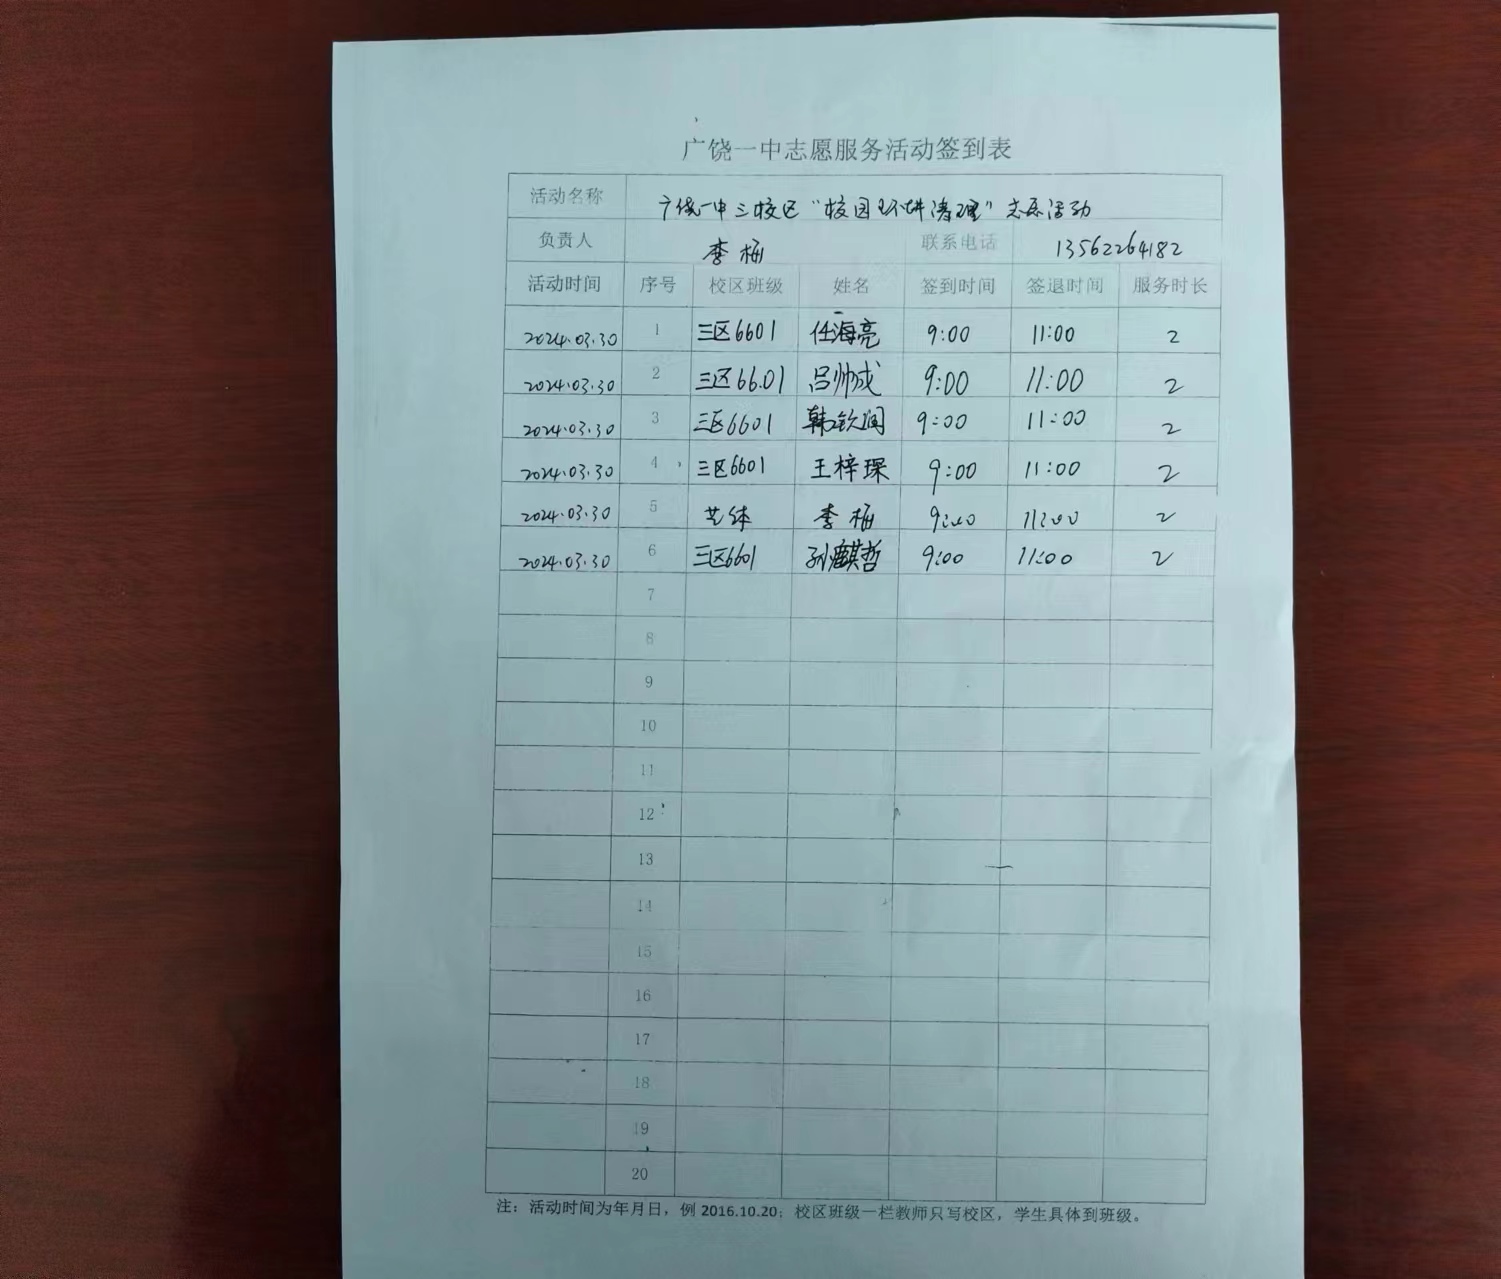 广饶一中志愿服务活动签到表
活动名称 广饶一中三校区“校园环境清理”志愿活动
负责人 李梅 联系电话 13562264182
活动时间 序号 校区班级 姓名 签到时间 签退时间 服务时长
2024.03.30 1 三区6601 任海亮 9:00 11:00 2
2024.03.30 2 三区6601 吕帅成 9:00 11:00 2
2024.03.30 3 三区6601 韩钦润 9:00 11:00 2
2024.03.30 4 三区6601 王梓琛 9:00 11:00 2
2024.03.30 5 艺体 李梅 9:00 11:00 2
2024.03.30 6 三区6601 孙麒哲 9:00 11:00 2
7
8
9
10
11
12
13
14
15
16
17
18
19
20
注：活动时间为年月日，例 2016.10.20；校区班级一栏教师只写校区，学生具体到班级。